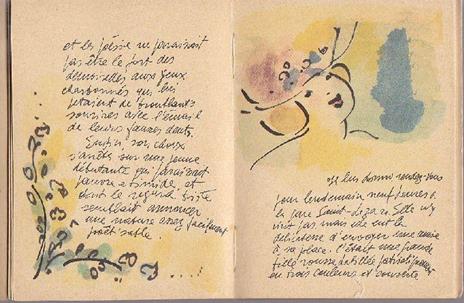 et la poésie ne paraissait
pas être le fort des
demoiselles aux yeux
charbonnés qui lui
jetaient de brouillards
sourires avec l'émail de
de leurs fausses dents.
Enfin, son choix
s'arrêta sur une jeune
débutante qui paraissait
pauvre et timide, et
dont le regard triste
semblait annoncer
une nature assez facilement
poétisable
Je lui donnai rendez-vous
pour lendemain neuf heures à
la gare Saint-Lazare. Elle n'y
vint pas mais elle eut la
délicatesse d'envoyer une amie
à sa place. C'était une grande
fille rousse
en trois couleurs et couverte